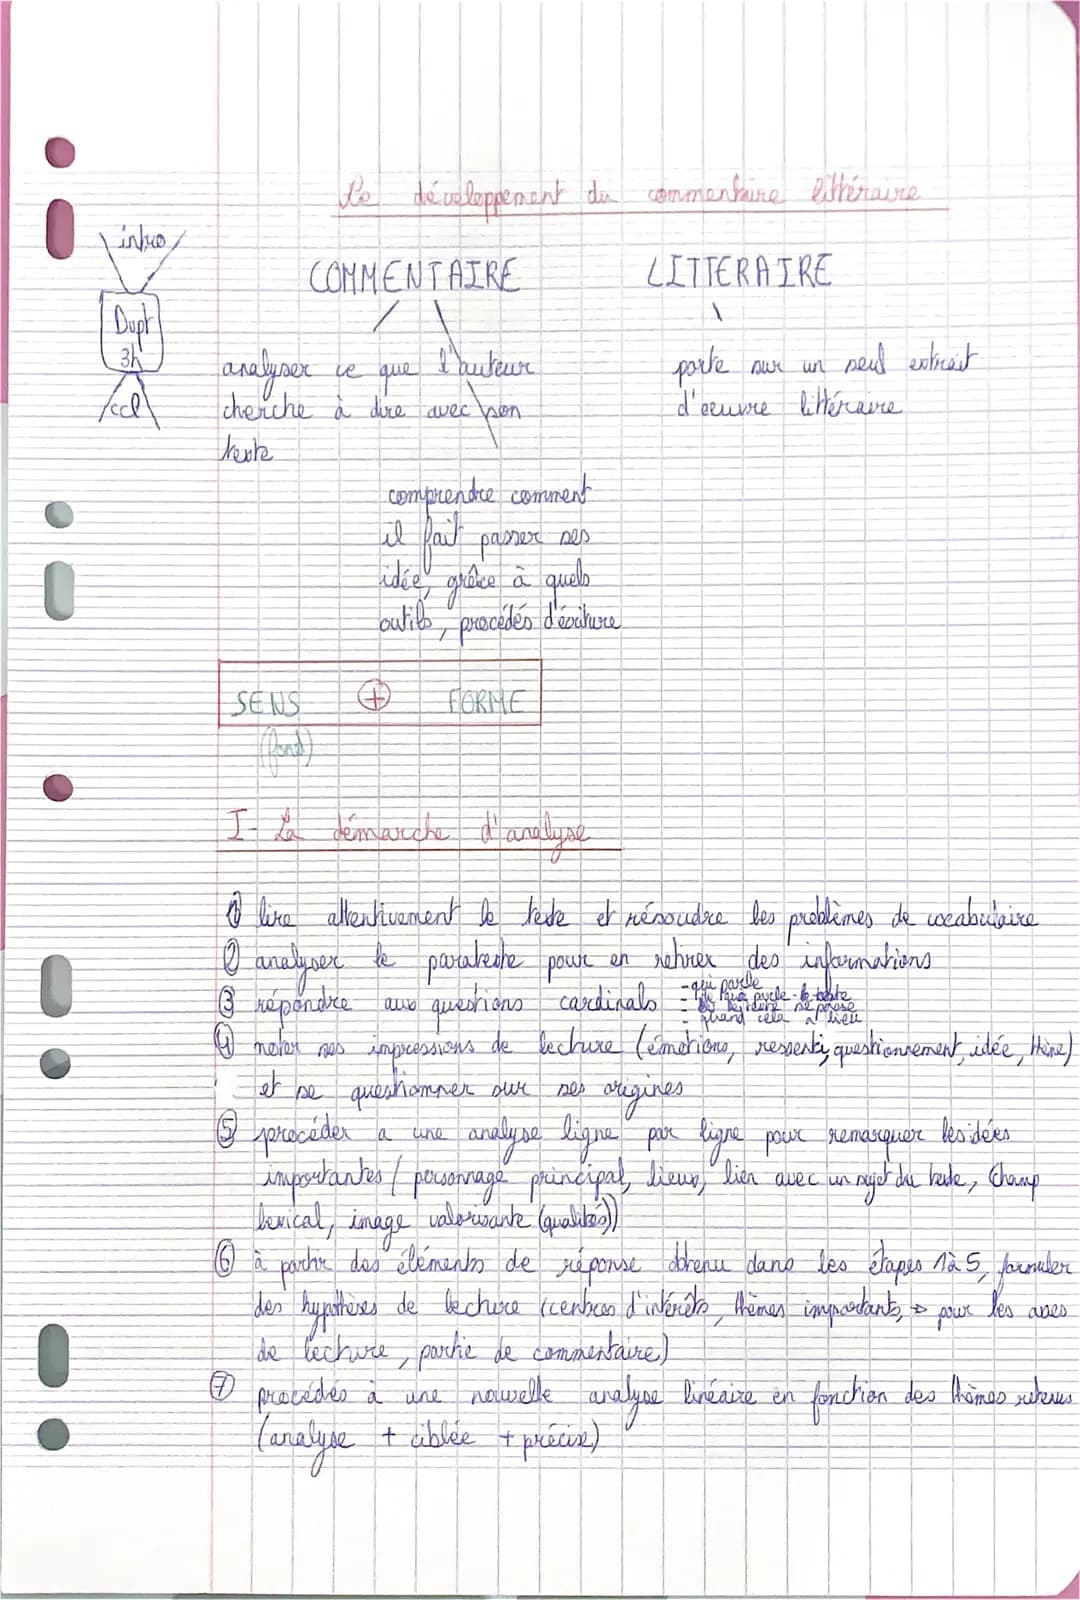 Le développement du commentaire littéraire
intro
Dvpt
3h
ccl
COMMENTAIRE LITTERAIRE
analyser ce que l'auteur
cherche à dire avec son
texte
porte sur un seul extrait
d'oeuvre littéraire
comprendre comment
il fait passer ses
idée, grâce à quels
outils, procédés d'écriture
SENS + FORME
(fond)
I- La démarche d'analyse
① lire attentivement le texte et résoudre les problèmes de vocabulaire
② analyser le paratexte pour en retirer des informations
③ répondre aux questions cardinals
- qui parle
- parle le texte
- se passe
- quand cela a lieu
④ noter nos impressions de lecture (émotions, ressenti, questionnement, idée, thème)
et se questionner sur ses origines
⑤ procéder a une analyse ligne par ligne pour remarquer les idées
importantes / personnage principal, lieux, lien avec un sujet du texte, Champ
lexical, image valorisante (qualités))
⑥ à partir des éléments de réponse obtenu dans les étapes 1 à 5, formuler
des hypothèses de lecture (centres d'intérêts, thèmes importants, → pour les axes
de lecture, partie de commentaire)
⑦ procédés à une nouvelle analyse linéaire en fonction des thèmes retenus
(analyse + ciblée + précise)